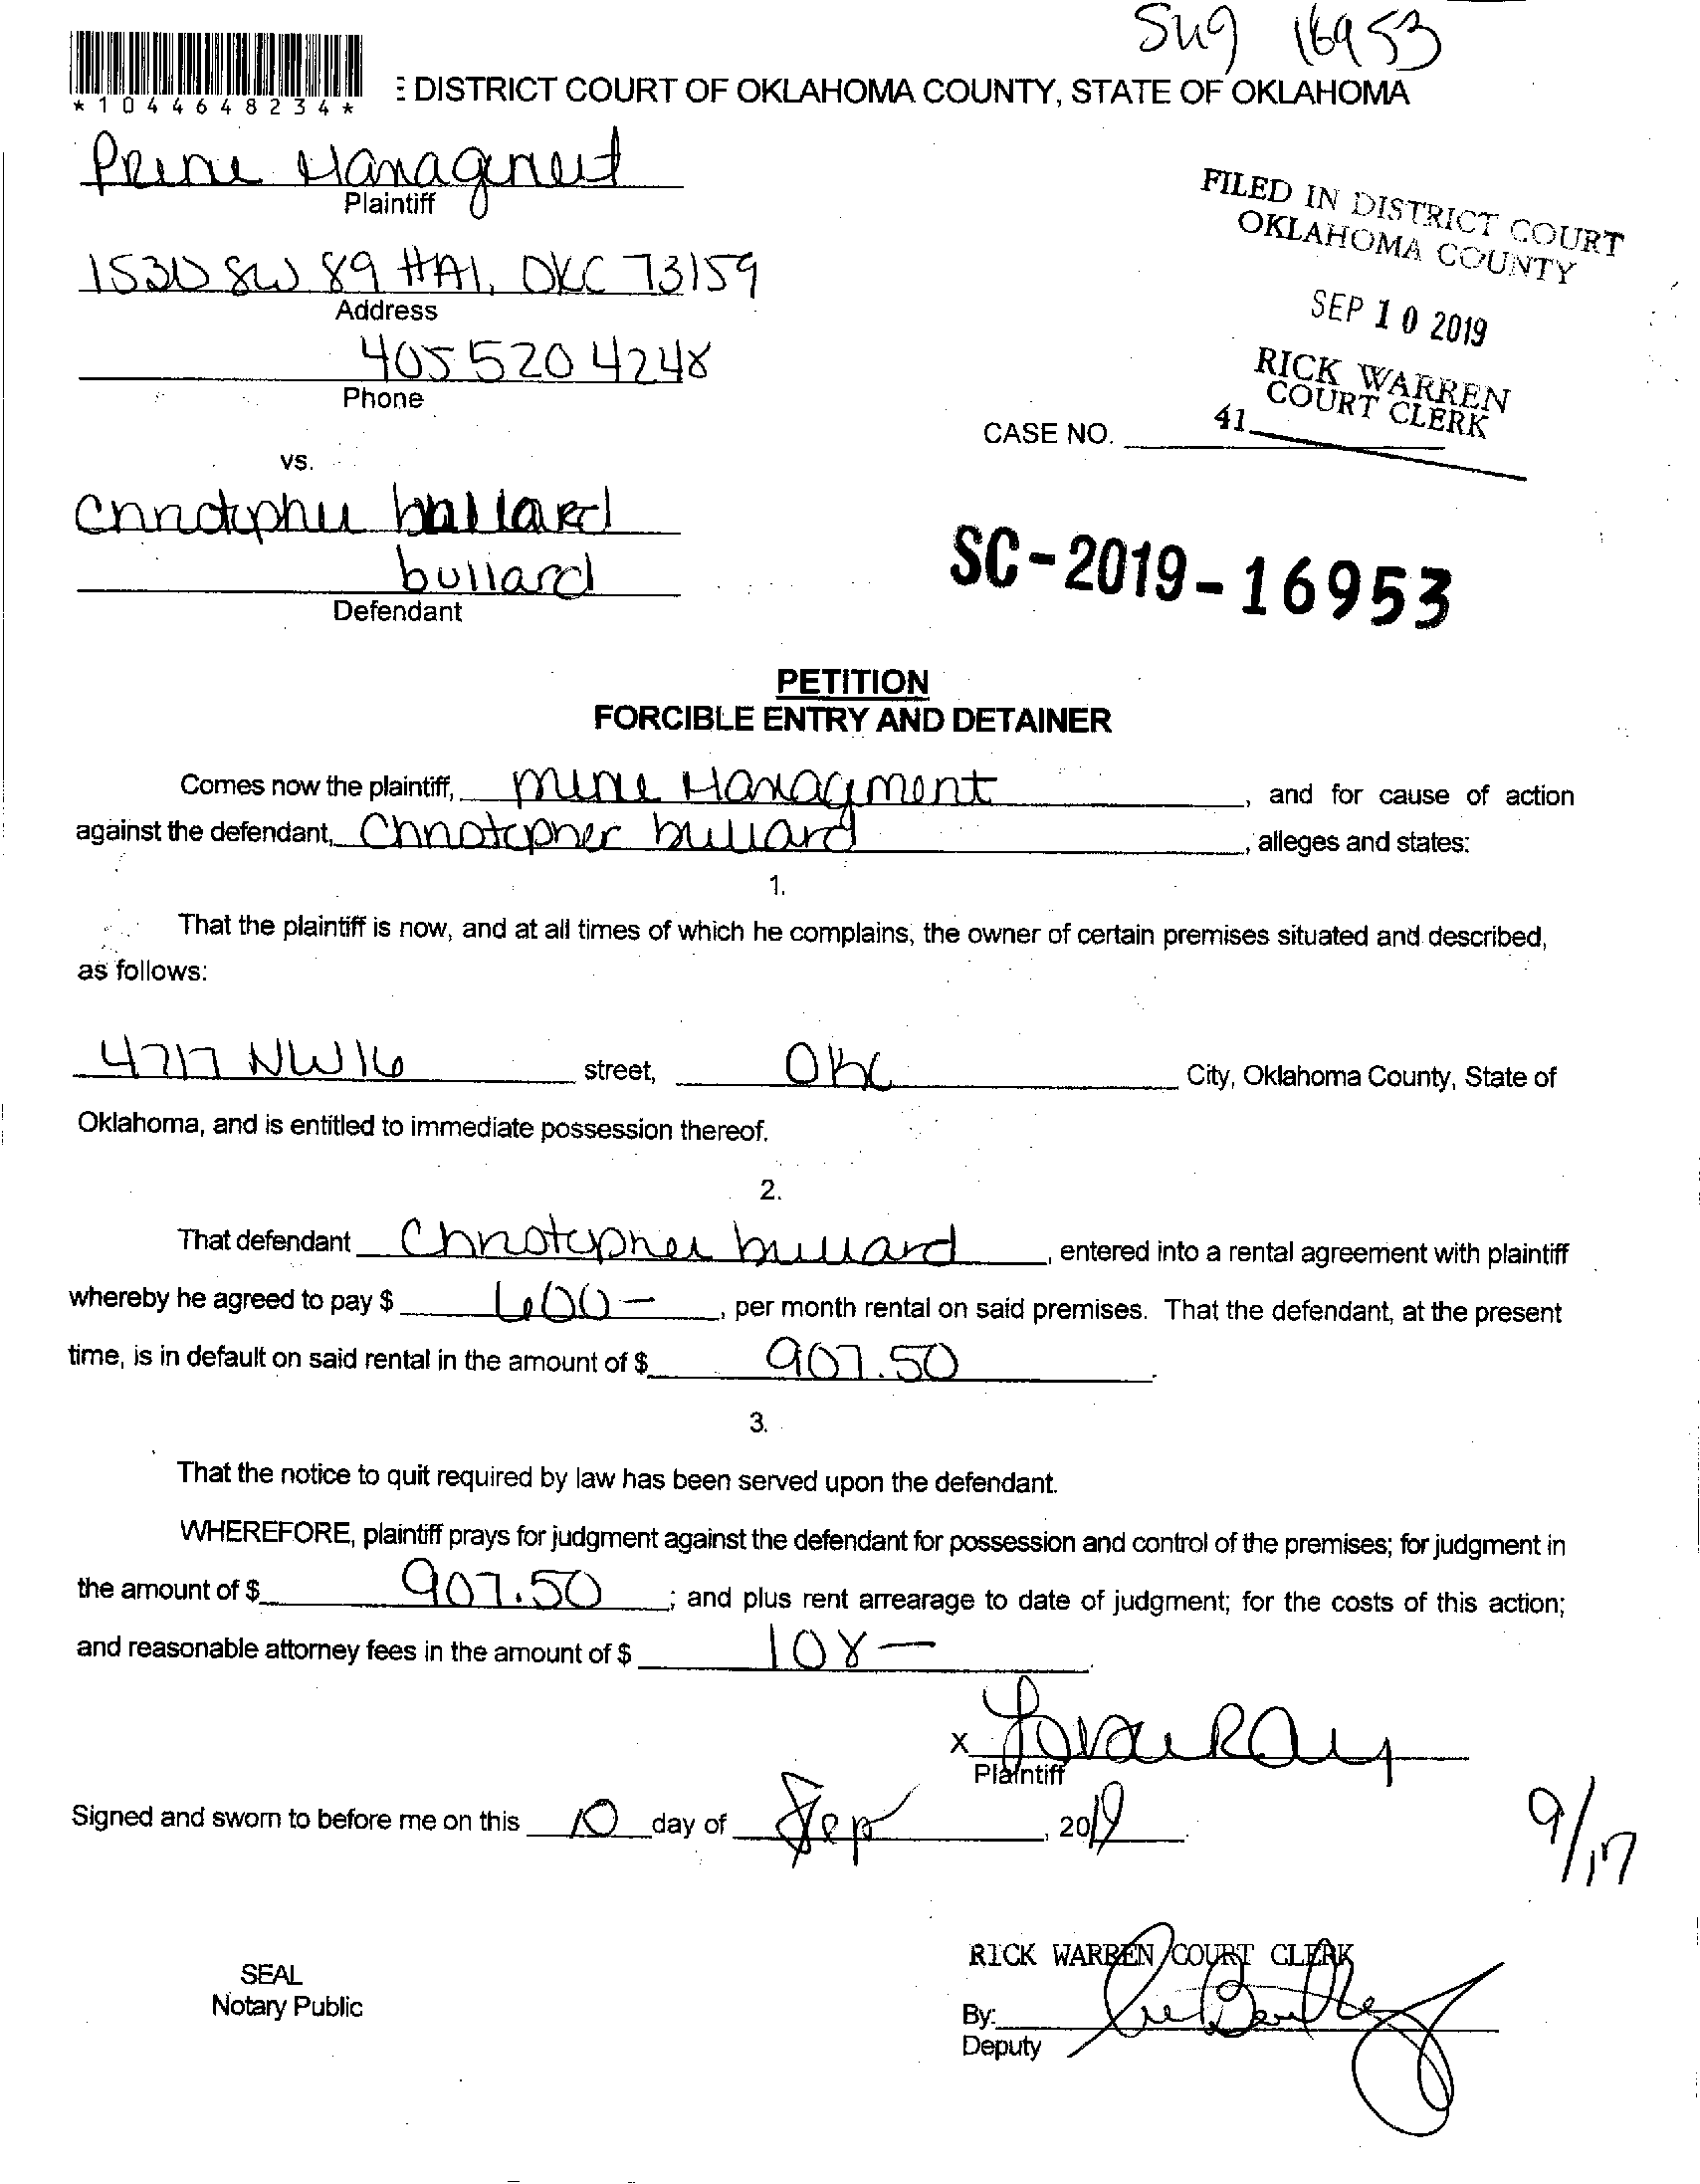 16953
DISTRICT COURT OF OKLAHOMA COUNTY, STATE OF OKLAHOMA
*1044648234*
Managment
Plaintiff
FILED IN DISTRICT COURT
OKLAHOMA COUNTY
1530 SW 89 #A1, OKC 73159
Address
SEP 10 2019
405 520 4248
Phone
RICK WARREN
COURT CLERK
41
CASE NO.
vs.
ballard
bullard
Defendant
SC-2019-16953
PETITION
FORCIBLE ENTRY AND DETAINER
Comes now the plaintiff, Managment, and for cause of action
against the defendant, Christopher bullard, alleges and states:
1.
That the plaintiff is now, and at all times of which he complains, the owner of certain premises situated and described,
as follows:
4717 NW 16 street, OKC City, Oklahoma County, State of
Oklahoma, and is entitled to immediate possession thereof.
2.
That defendant Christopher bullard, entered into a rental agreement with plaintiff
whereby he agreed to pay $ 600-, per month rental on said premises. That the defendant, at the present
time, is in default on said rental in the amount of $ 907.50.
3.
That the notice to quit required by law has been served upon the defendant.
WHEREFORE, plaintiff prays for judgment against the defendant for possession and control of the premises; for judgment in
the amount of $ 907.50; and plus rent arrearage to date of judgment; for the costs of this action;
and reasonable attorney fees in the amount of $ 108-.
X
Plaintiff
Signed and sworn to before me on this 10 day of Sep, 2019.
9/17
RICK WARREN COURT CLERK
SEAL
Notary Public
By:
Deputy